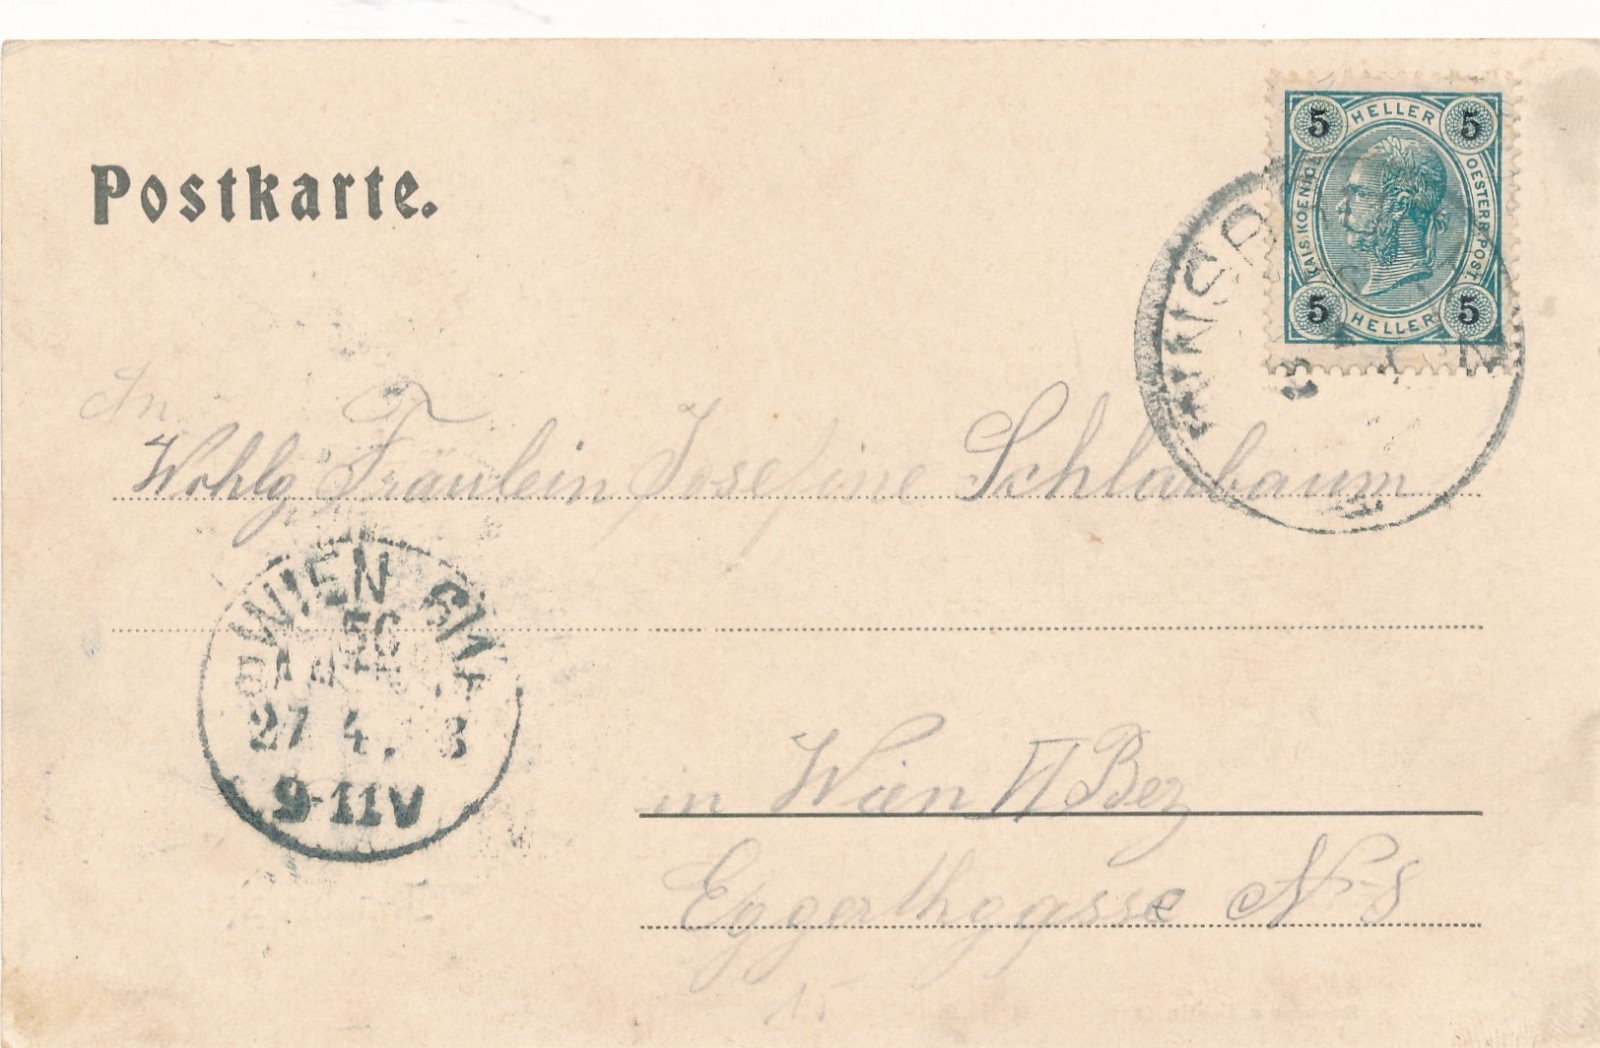 Postkarte.
5 HELLER 5
KAIS. KOENIGL. OESTERR. POST.
5 HELLER 5
An
Wohlg. Fräulein Josefine Schlarbaum
WIEN 6/1
56
27 4. 3
9-11V
in Wien VI Bez
Eggerthgasse No 8